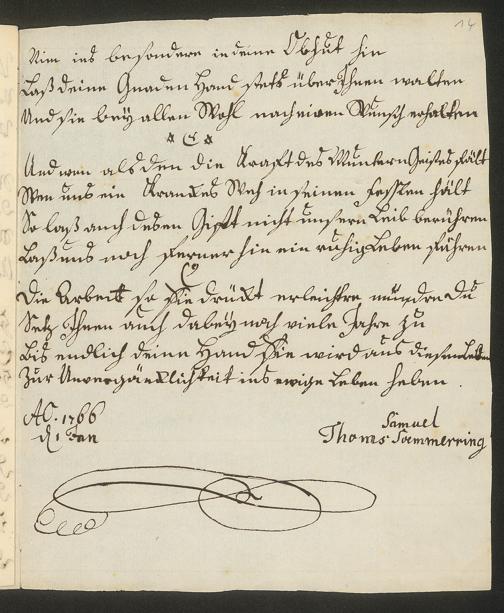 14
Nim ins besondere in deine Obhut hin
Laß deine Gnaden Hand stets über Ihnen walten
Und sie bey allen Wohl nach einen Wunsch erhalten
Und wen als den die Krafft des Muntern Geistes fält
Wen uns ein Krankes Weh in seinen Fesslen hält
So laß auch desen Gifft nicht unsern Leib berühren
Laß uns noch ferner hin ein ruhig Leben führen
Die Arbeit so Sie drückt erleichtre mündre du
Setz Ihnen auch dabey noch viele Jahre zu
Bis endlich deine Hand Sie wird aus diesem Leben
Zur Unvergänklichkeit ins ewige Leben heben .
AC. 1766
d 1 Jan
Samuel
Thoms Sömmerring